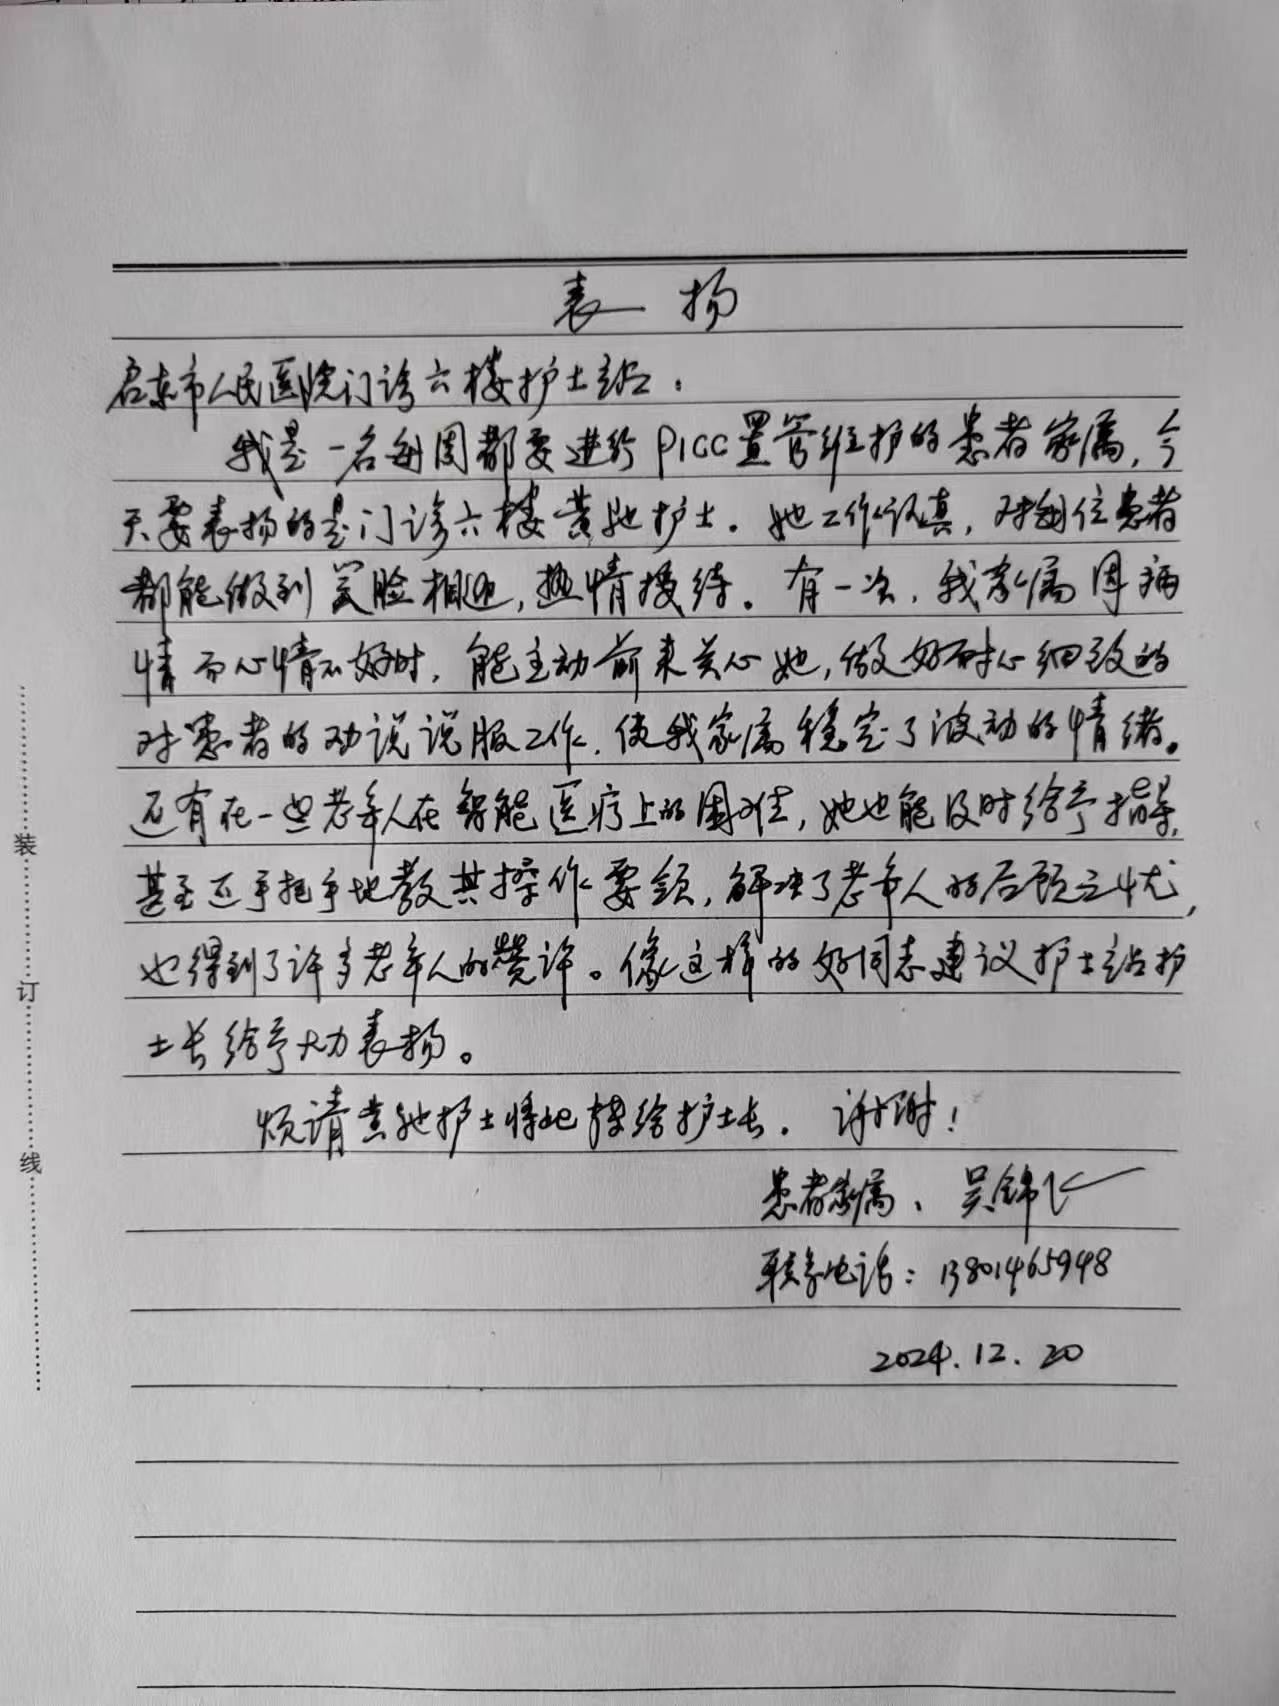 表扬
启东市人民医院门诊六楼护士站：
我是一名每周都要进行PICC置管维护的患者家属，今
天要表扬的是门诊六楼黄驰护士。她工作认真，对每位患者
都能做到笑脸相迎，热情接待。有一次，我家属因病
情而心情不好时，能主动前来关心她，做好耐心细致的
对患者的劝说说服工作，使我家属稳定了波动的情绪。
还有在一些老年人在智能医疗上的困难，她也能及时给予指导，
甚至还手把手地教其操作要领，解决了老年人的后顾之忧，
也得到了许多老年人的赞许。像这样的好同志建议护士站护
士长给予大力表扬。
烦请黄驰护士将此转给护士长。谢谢！
患者家属：吴锦飞
联系电话：13801465948
2024.12.20
装
订
线